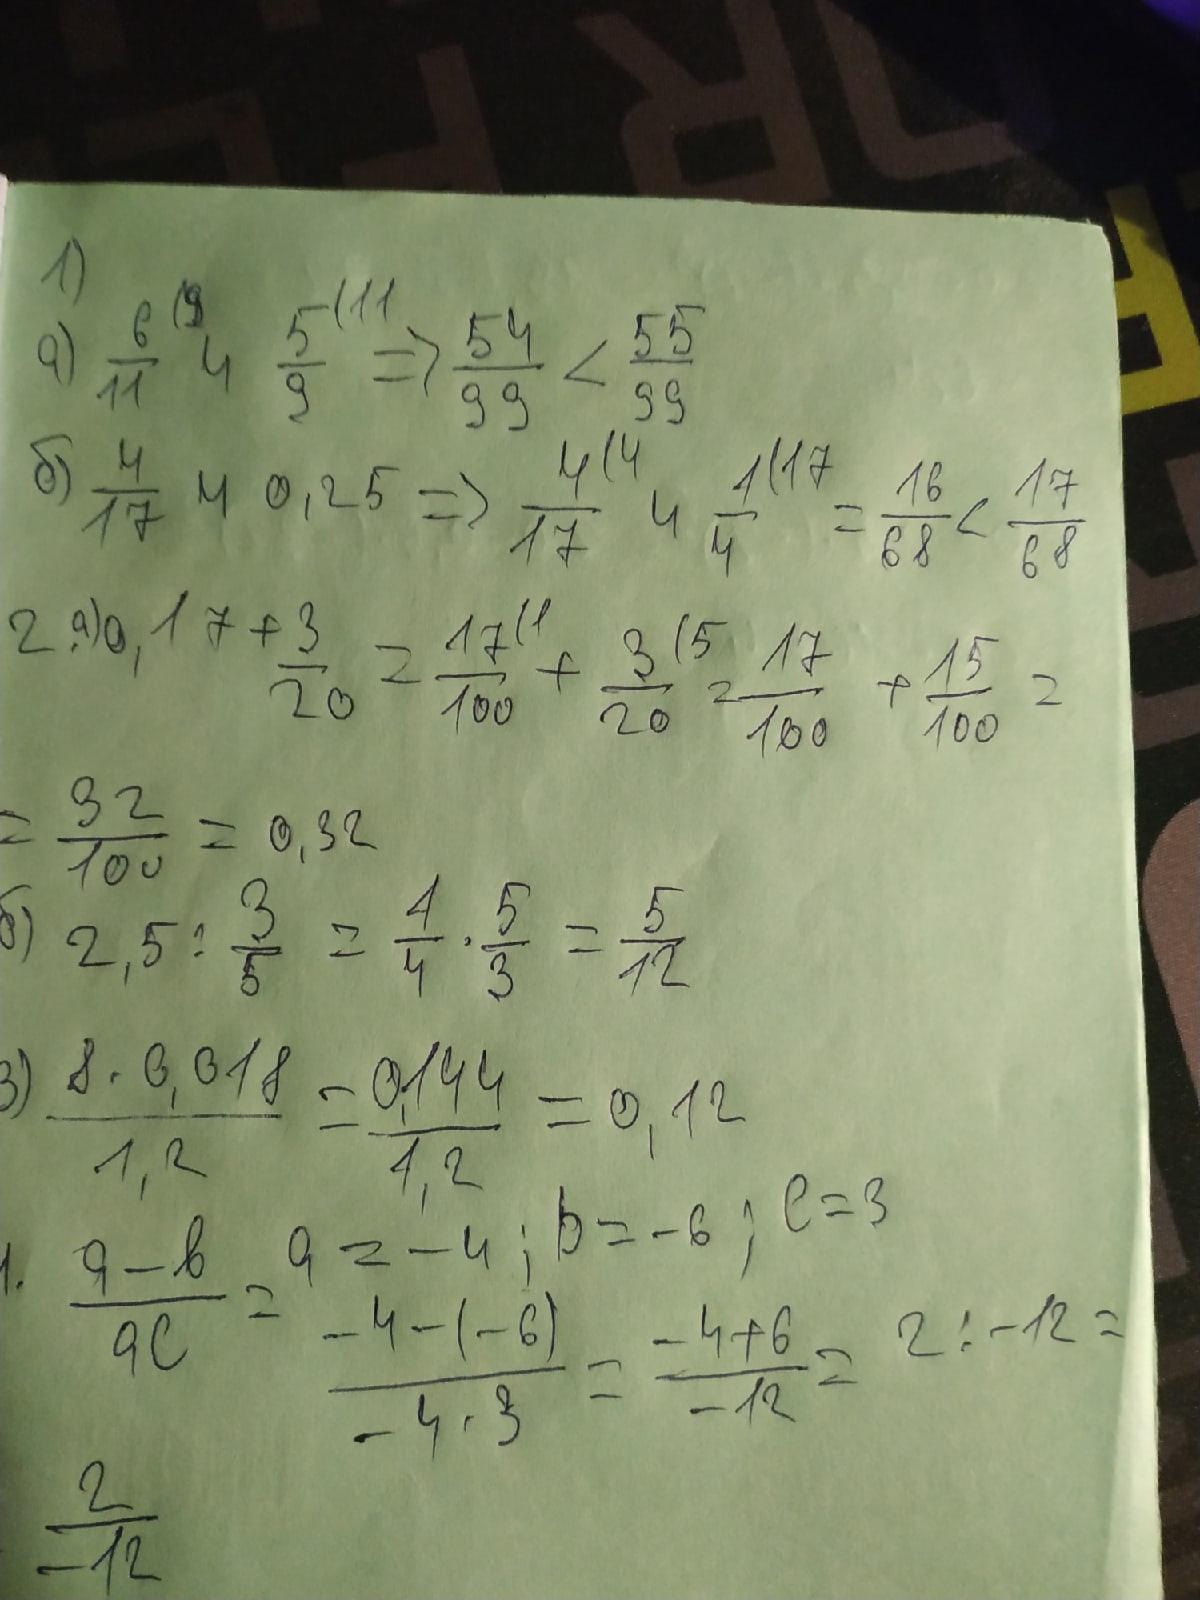 1)
а) 6/11 (9 и 5/9 (11 => 54/99 < 55/99
б) 4/17 и 0,25 => 4/17 (4 и 1/4 (17 = 16/68 < 17/68
2. а) 0,17 + 3/20 = 17/100 (1 + 3/20 (5 = 17/100 + 15/100 =
= 32/100 = 0,32
б) 2,5 : 3/5 = 1/4 · 5/3 = 5/12
3) 8 · 0,018/1,2 = 0,144/1,2 = 0,12
a = -4 ; b = -6 ; c = 3
4. a - b/ac = -4 - (-6)/-4 · 3 = -4 + 6/-12 = 2 : -12 =
2/-12